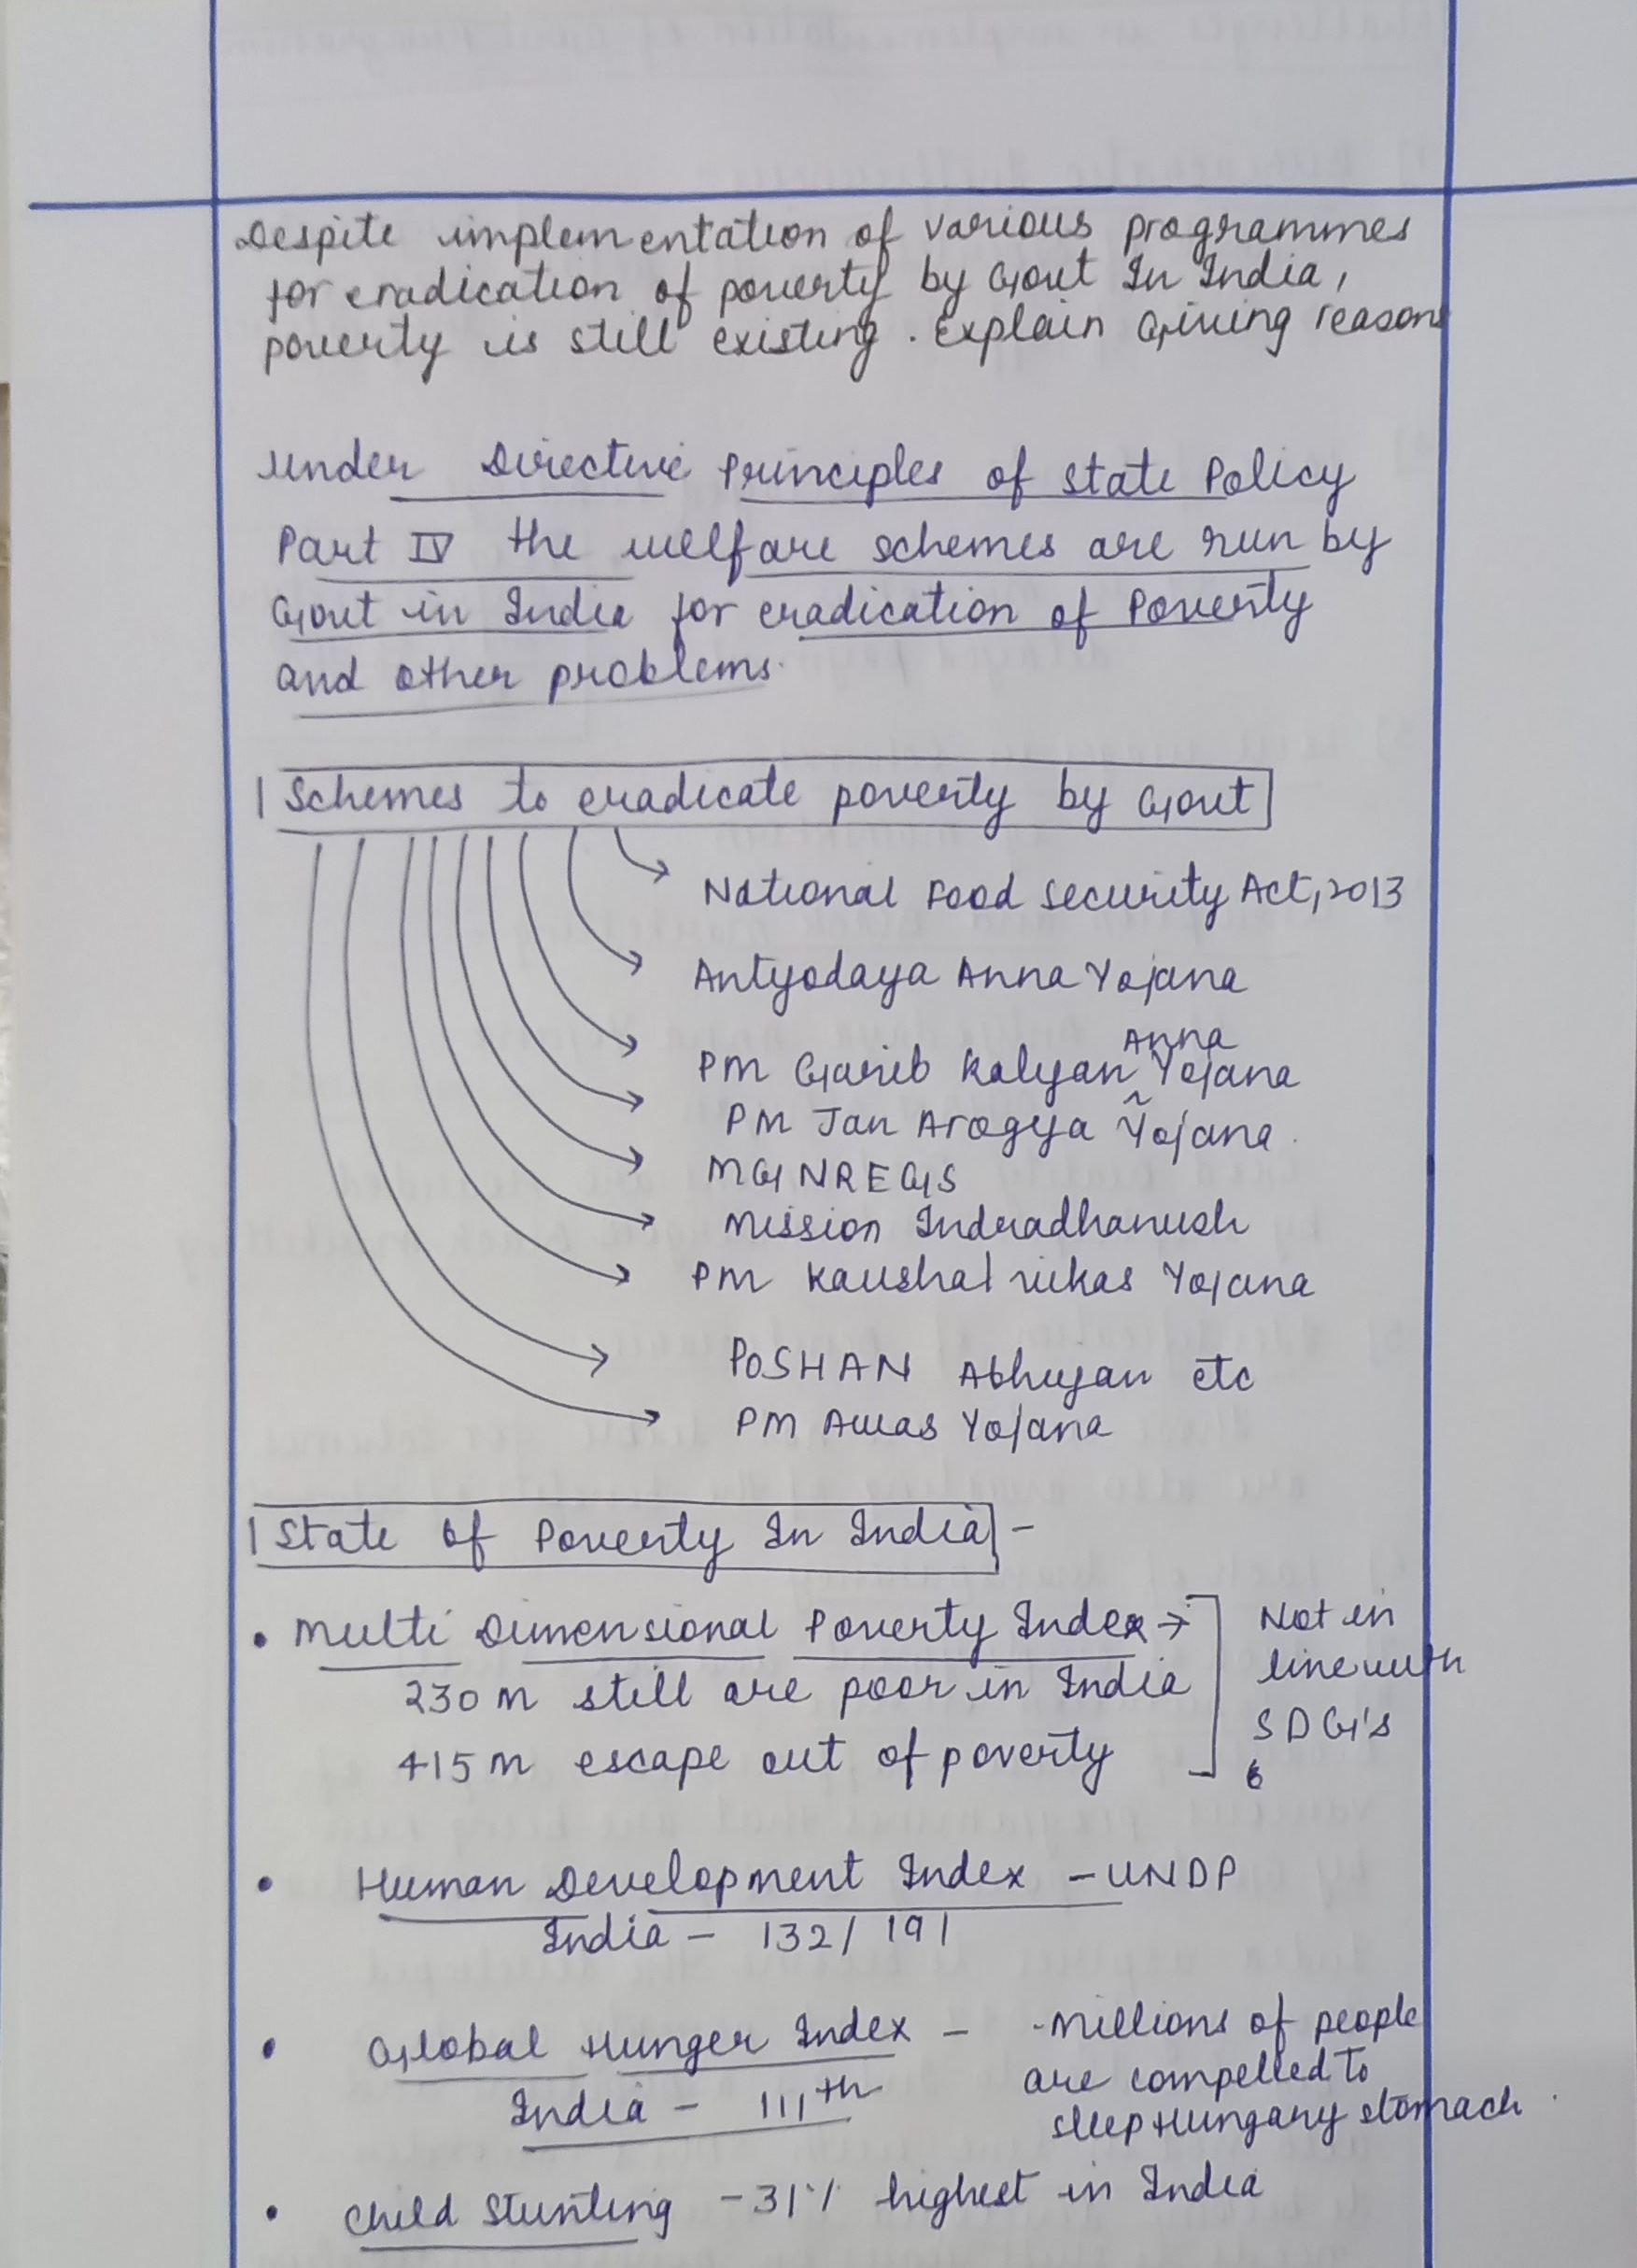 Despite implementation of various programmes
for eradication of poverty by Govt In India,
poverty is still existing. Explain Giving reasons
Under Directive Principles of State Policy
Part IV the welfare schemes are run by
Govt in India for eradication of Poverty
and other problems.
Schemes to eradicate poverty by Govt
National Food Security Act, 2013
Antyodaya Anna Yojana
Anna
PM Garib Kalyan Yojana
PM Jan Arogya Yojana.
MGNREGS
Mission Indradhanush
PM Kaushal Vikas Yojana
POSHAN Abhiyan etc
PM Awas Yojana
State Of Poverty In India -
• Multi Dimensional Poverty Index → Not in
230 M still are poor in India line with
415 M escape out of poverty SDG's
• Human Development Index - UNDP
India - 132/191
• Global Hunger Index - - Millions of people
India - 111th are compelled to
sleep Hungary stomach
• Child Stunting - 31% highest in India